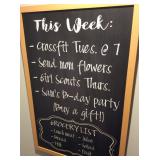 This Week:
- Crossfit Tues. @ 7
- Send mom flowers
- Girl Scouts Thurs.
- Sam's B-day party
(Buy a gift!)
GROCERY LIST